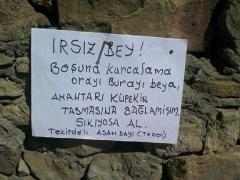 IRSIZ BEY!
Boşuna kurcalama
orayı burayı beya,
ANAHTARI KÜPEKİN
TASMASINA BAĞLAMIŞIM,
SIKIYOSA AL.
Tekirdalı ASAN DAYI